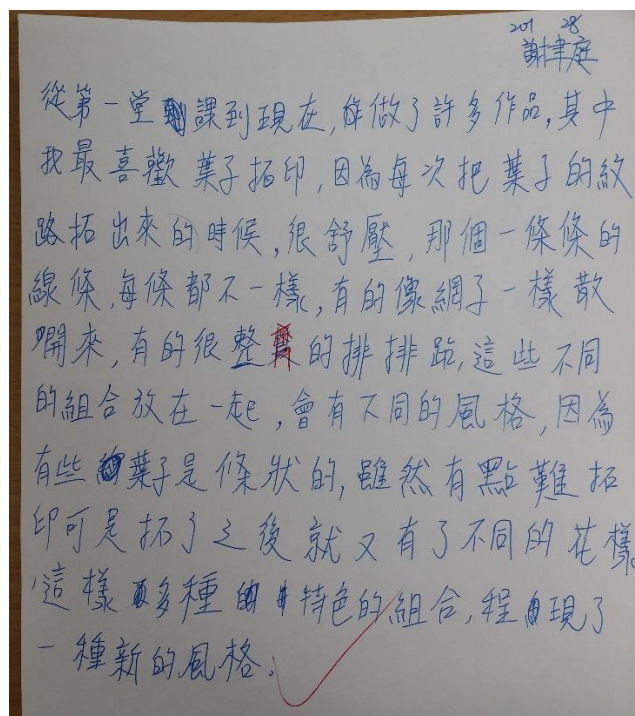 201 28
謝聿庭
從第一堂課到現在,做了許多作品,其中
我最喜歡葉子拓印,因為每次把葉子的紋
路拓出來的時候,很舒壓,那個一條條的
線條,每條都不一樣,有的像網子一樣散
開來,有的很整的排排跕,這些不同
的組合放在一起,會有不同的風格,因為
有些葉子是條狀的,雖然有點難拓
印可是拓了之後就又有了不同的花樣
,這樣多種特色的組合,程現了
一種新的風格。